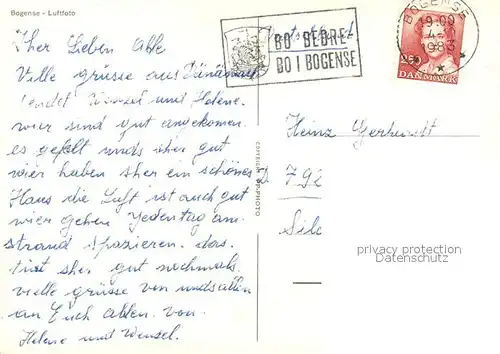 Bogense - Luftfoto
Ihr Lieben Alle
Ville grüsse aus Dänänark
sendet Wensel und Helene.
wier sind gut angekomen.
es gefält unds sher gut
wier haben sher ein schönes
Haus die Luft ist auch gut
wier gehen Jedentag am
strand spazieren. das
tut sher gut nochmals
vielle grüsse von unds allen
an Euch allen. von
Helene und Wensel.
BO BEDRE
BO I BOGENSE
BOGENSE
19:00
1983
250
DANMARK
COPYRIGHT PP-PHOTO
Heinz
D 792
privacy protection
Datenschutz